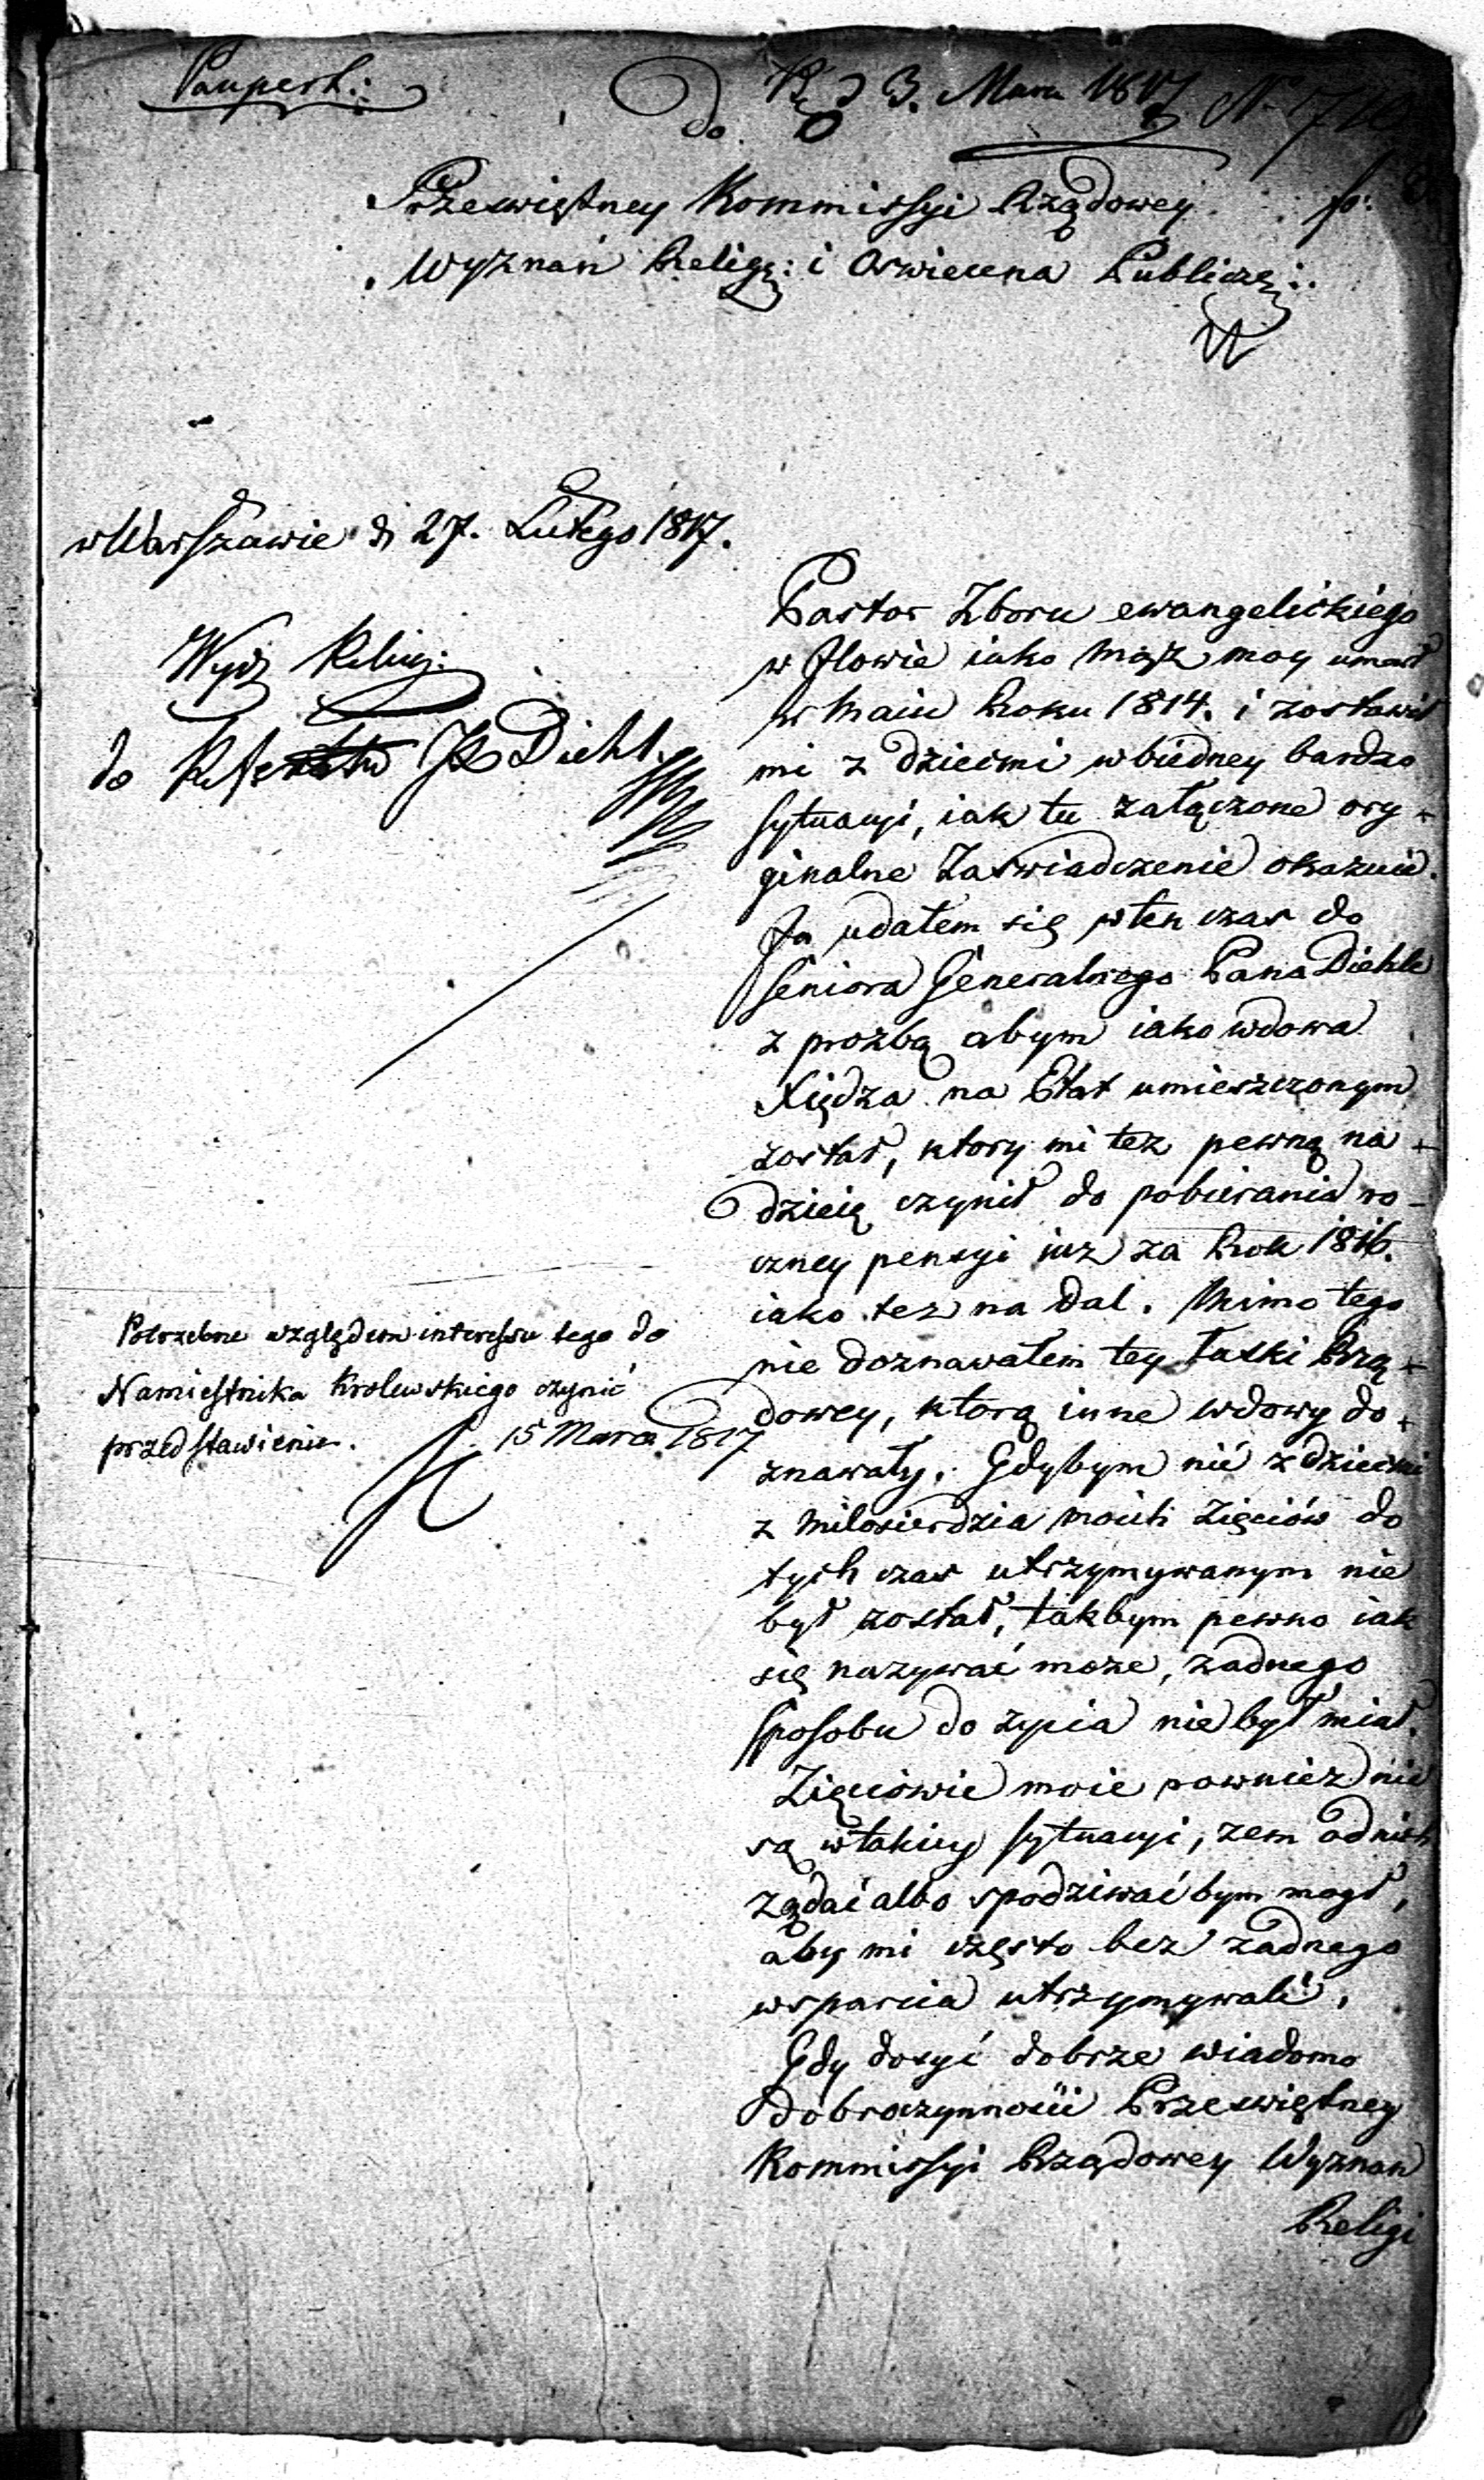 Paupert:
do
3. Marca 1817 N.
Przeswiętney Kommissyi Rządowey
Wyznań Relig: i Oswiecena Publiczn:
w Warszawie d 27. Lutego 1817.
Wydz Relig:
do Referatu JX Diehl.
Pastor Zboru ewangelickiego
w Jłowie iako mąż moy umarł
w Maiu Roku 1814. i zostawił
mi z dziecmi w biedney bardzo
sytuacyi, iak tu załączone ory-
ginalne Zaswiadczenie okazuie.
Ja udałem się wten czas do
Seniora Generalnego Pana Diehle
z prozbą abym iako wdowa
Xiędza na Etat umieszczonym
został, ktory mi tez pewną na-
dzieię czynił do pobierania ro-
czney pensyi iuz za Rok 1816.
iako tez na dal. Mimo tego
nie doznawałem tey łaski Rzą-
dowey, ktorą inne wdowy do-
znawały. Gdybym nié z dziecmi
z miłosierdzia moich Zięciów do
tych czas utrzymywanym nie
był został, takbym pewno iak
się nazywać moze, zadnego
sposobu do zycia nie był miał.
Zięciowie moie rownież nie
są w takiey sytuacyi, zem od nich
ządać albo spodziwać bym mogł,
aby mi często bez zadnego
wsparcia utrzymywali.
Gdy dosyć dobrze wiadomo
dobroczynności Przeswiętney
Kommissyi Rządowey Wyznan
Religi
Potrzebne względem interessu tego do
Namiestnika Krolewskiego czynić
przedstawienie.
15 Marca 1817